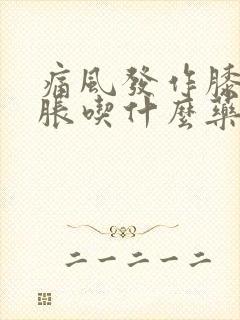 痛風發作膝
脹喫什麼藥
二一二一二